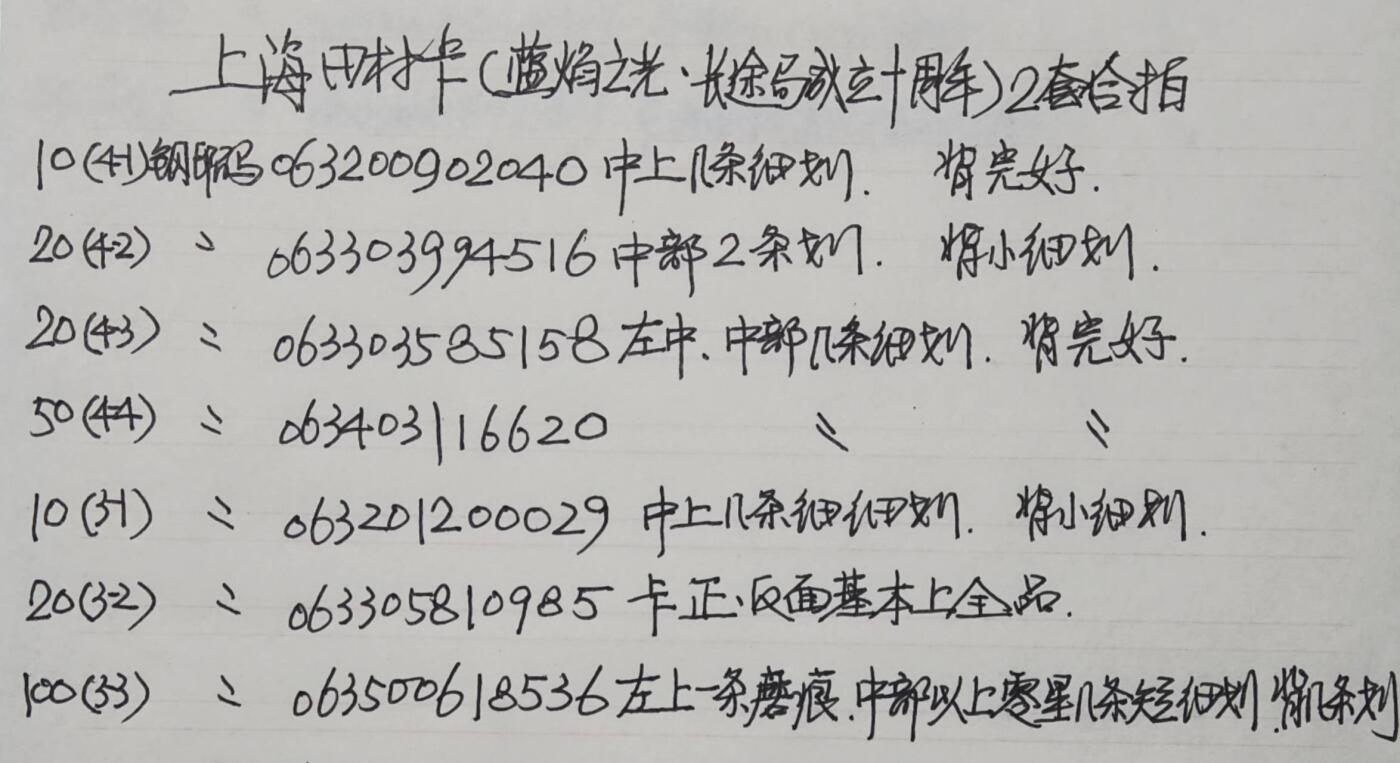 上海田村卡(蓝焰之光·长途局成立十周年)2套合拍
10(4-1)钢印码063200902040中上几条细划. 背完好.
20(4-2) 〃 063303994516中部2条划. 背小细划.
20(4-3) 〃 063303585158左中.中部几条细划. 背完好.
50(4-4) 〃 063403116620 〃 〃
10(3-1) 〃 063201200029 中上几条细细划. 背小细划.
20(3-2) 〃 063305810985 卡正.反面基本上全品.
100(3-3) 〃 063500618536左上一条磨痕.中部以上零星几条短细划.背几条划